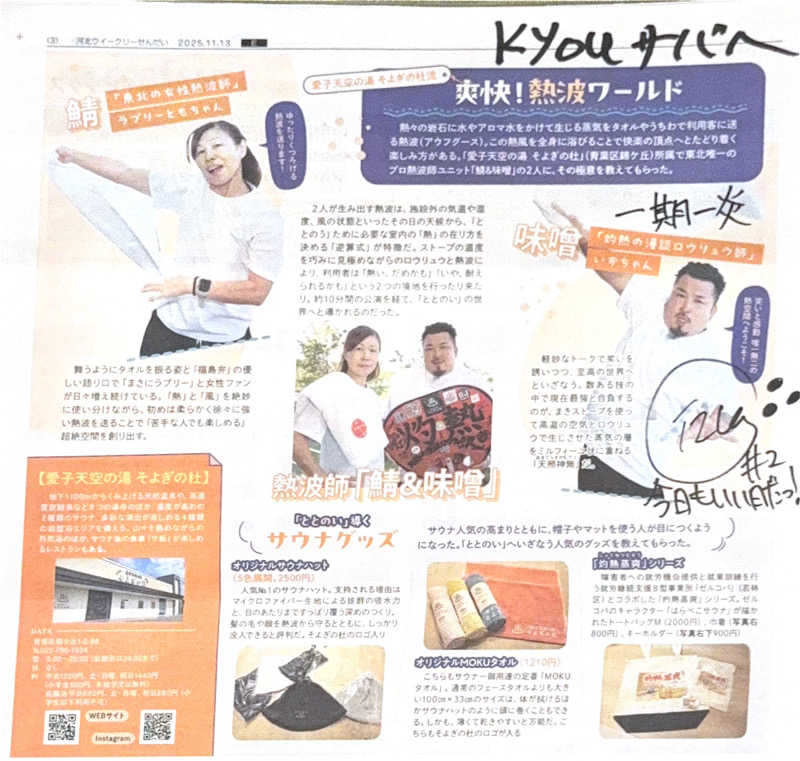 (3) 河北ウイークリーせんだい 2025.11.13
Kyouサバへ
鯖
「東北の女性熱波師」
ラブリーともちゃん
ゆったりくつろげる
熱波を送ります!
愛子天空の湯 そよぎの杜流
爽快!熱波ワールド
熱々の岩石に水やアロマ水をかけて生じる蒸気をタオルやうちわで利用客に送
る熱波(アウフグース)。この熱風を全身に浴びることで快楽の頂点へとたどり着く
楽しみ方がある。「愛子天空の湯 そよぎの杜」(青葉区錦ケ丘)所属で東北唯一の
プロ熱波師ユニット「鯖&味噌」の2人に、その極意を教えてもらった。
2人が生み出す熱波は、施設外の気温や湿
度、風の状態といったその日の天候から、「と
とのう」ために必要な室内の「熱」の在り方を
決める「逆算式」が特徴だ。ストーブの温度
を巧みに見極めながらのロウリュウと熱波に
より、利用者は「熱い、だめかも」「いや、耐え
られるかも」という2つの境地を行ったり来た
り。約10分間の公演を経て、「ととのい」の世
界へと導かれるのだった。
一期一炎
味噌
「灼熱の漫談ロウリュウ師」
いずちゃん
笑いと感動 唯一無二の
熱空間へようこそ!
舞うようにタオルを振る姿と「福島弁」の優
しい語り口で「まさにラブリー」と女性ファン
が日々増え続けている。「熱」と「風」を絶妙
に使い分けながら、初めは柔らかく徐々に強
い熱波を送ることで「苦手な人でも楽しめる」
超絶空間を創り出す。
軽妙なトークで笑いを
誘いつつ、至高の世界へ
といざなう。数ある技の
中で現在最強と自負する
のが、まきストーブを使っ
て高温の空気とロウリュ
ウで生じさせた蒸気の層
をミルフィーユ状に重ねる
「天照神無」だ。
灼熱
#2
今日もいい日だっ!
熱波師「鯖&味噌」
【愛子天空の湯 そよぎの杜】
地下1100mからくみ上げる天然温泉や、高濃
レストランもある。
DATA
WEBサイト
Instagram
「ととのい」導く
サウナグッズ
サウナ人気の高まりとともに、帽子やマットを使う人が目につくよう
になった。「ととのい」へいざなう人気のグッズを教えてもらった。
オリジナルサウナハット
(5色展開、2500円)
人気No.1のサウナハット。支持される理由は
マイクロファイバー生地による抜群の吸水力
と、目のあたりまですっぽり覆う深めのつくり。
髪の毛や顔を熱波から守るとともに、しっかり
没入できると評判だ。そよぎの杜のロゴ入り
オリジナルMOKUタオル (1210円)
こちらもサウナー御用達の定番「MOKU
タオル」。通常のフェースタオルよりも大き
い100cm×33cmのサイズは、体が拭けるほ
かサウナハットのように頭に巻くこともでき
る。しかも、薄くて乾きやすいと万能だ。こ
ちらもそよぎの杜のロゴが入る
「灼熱蒸爽」シリーズ
障害者への就労機会提供と就業訓練を行
う就労継続支援B型事業所「ゼルコバ」(若林
区)とコラボした「灼熱蒸爽」シリーズ。ゼル
コバのキャラクター「はらぺこサウナ」が描か
れたトートバッグM(2000円)、巾着(写真右
800円)、キーホルダー(写真右下900円)